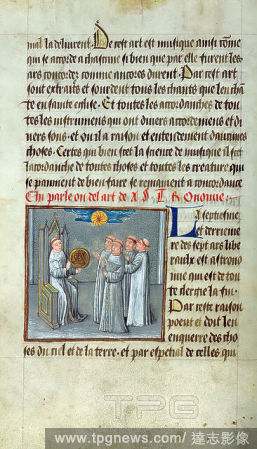 mal la deliurent. De cest art est musique ainsi cõme
qui se acorde a chascune si bien que par elle furent les
.ars concordez comme ancores durent. Par cest art
sont extraits et sourdent tous les chants que len chã
te en sainte eglise. Et toutes les acordanches de tou
tes les instrumens qui ont diuers accordemens et di
uers sons. et ou il a raison et entendement daucunes
choses. Certes qui bien scet la science de musique il scet
lacordance de toutes choses et toutes les creature qui
se painnent de bien faire se remainent a concordance
Chi parle on del art de
Le septiesme
et derreniere
re des sept ars libe
raulx est astrono
mie qui est de tou
te clergie la fin.
Par ceste raison
poent et doit len
enquerre des cho
ses du ciel et de la terre. et par especial de celles qui
TPG
www.tpgnews.com/ 達志影像